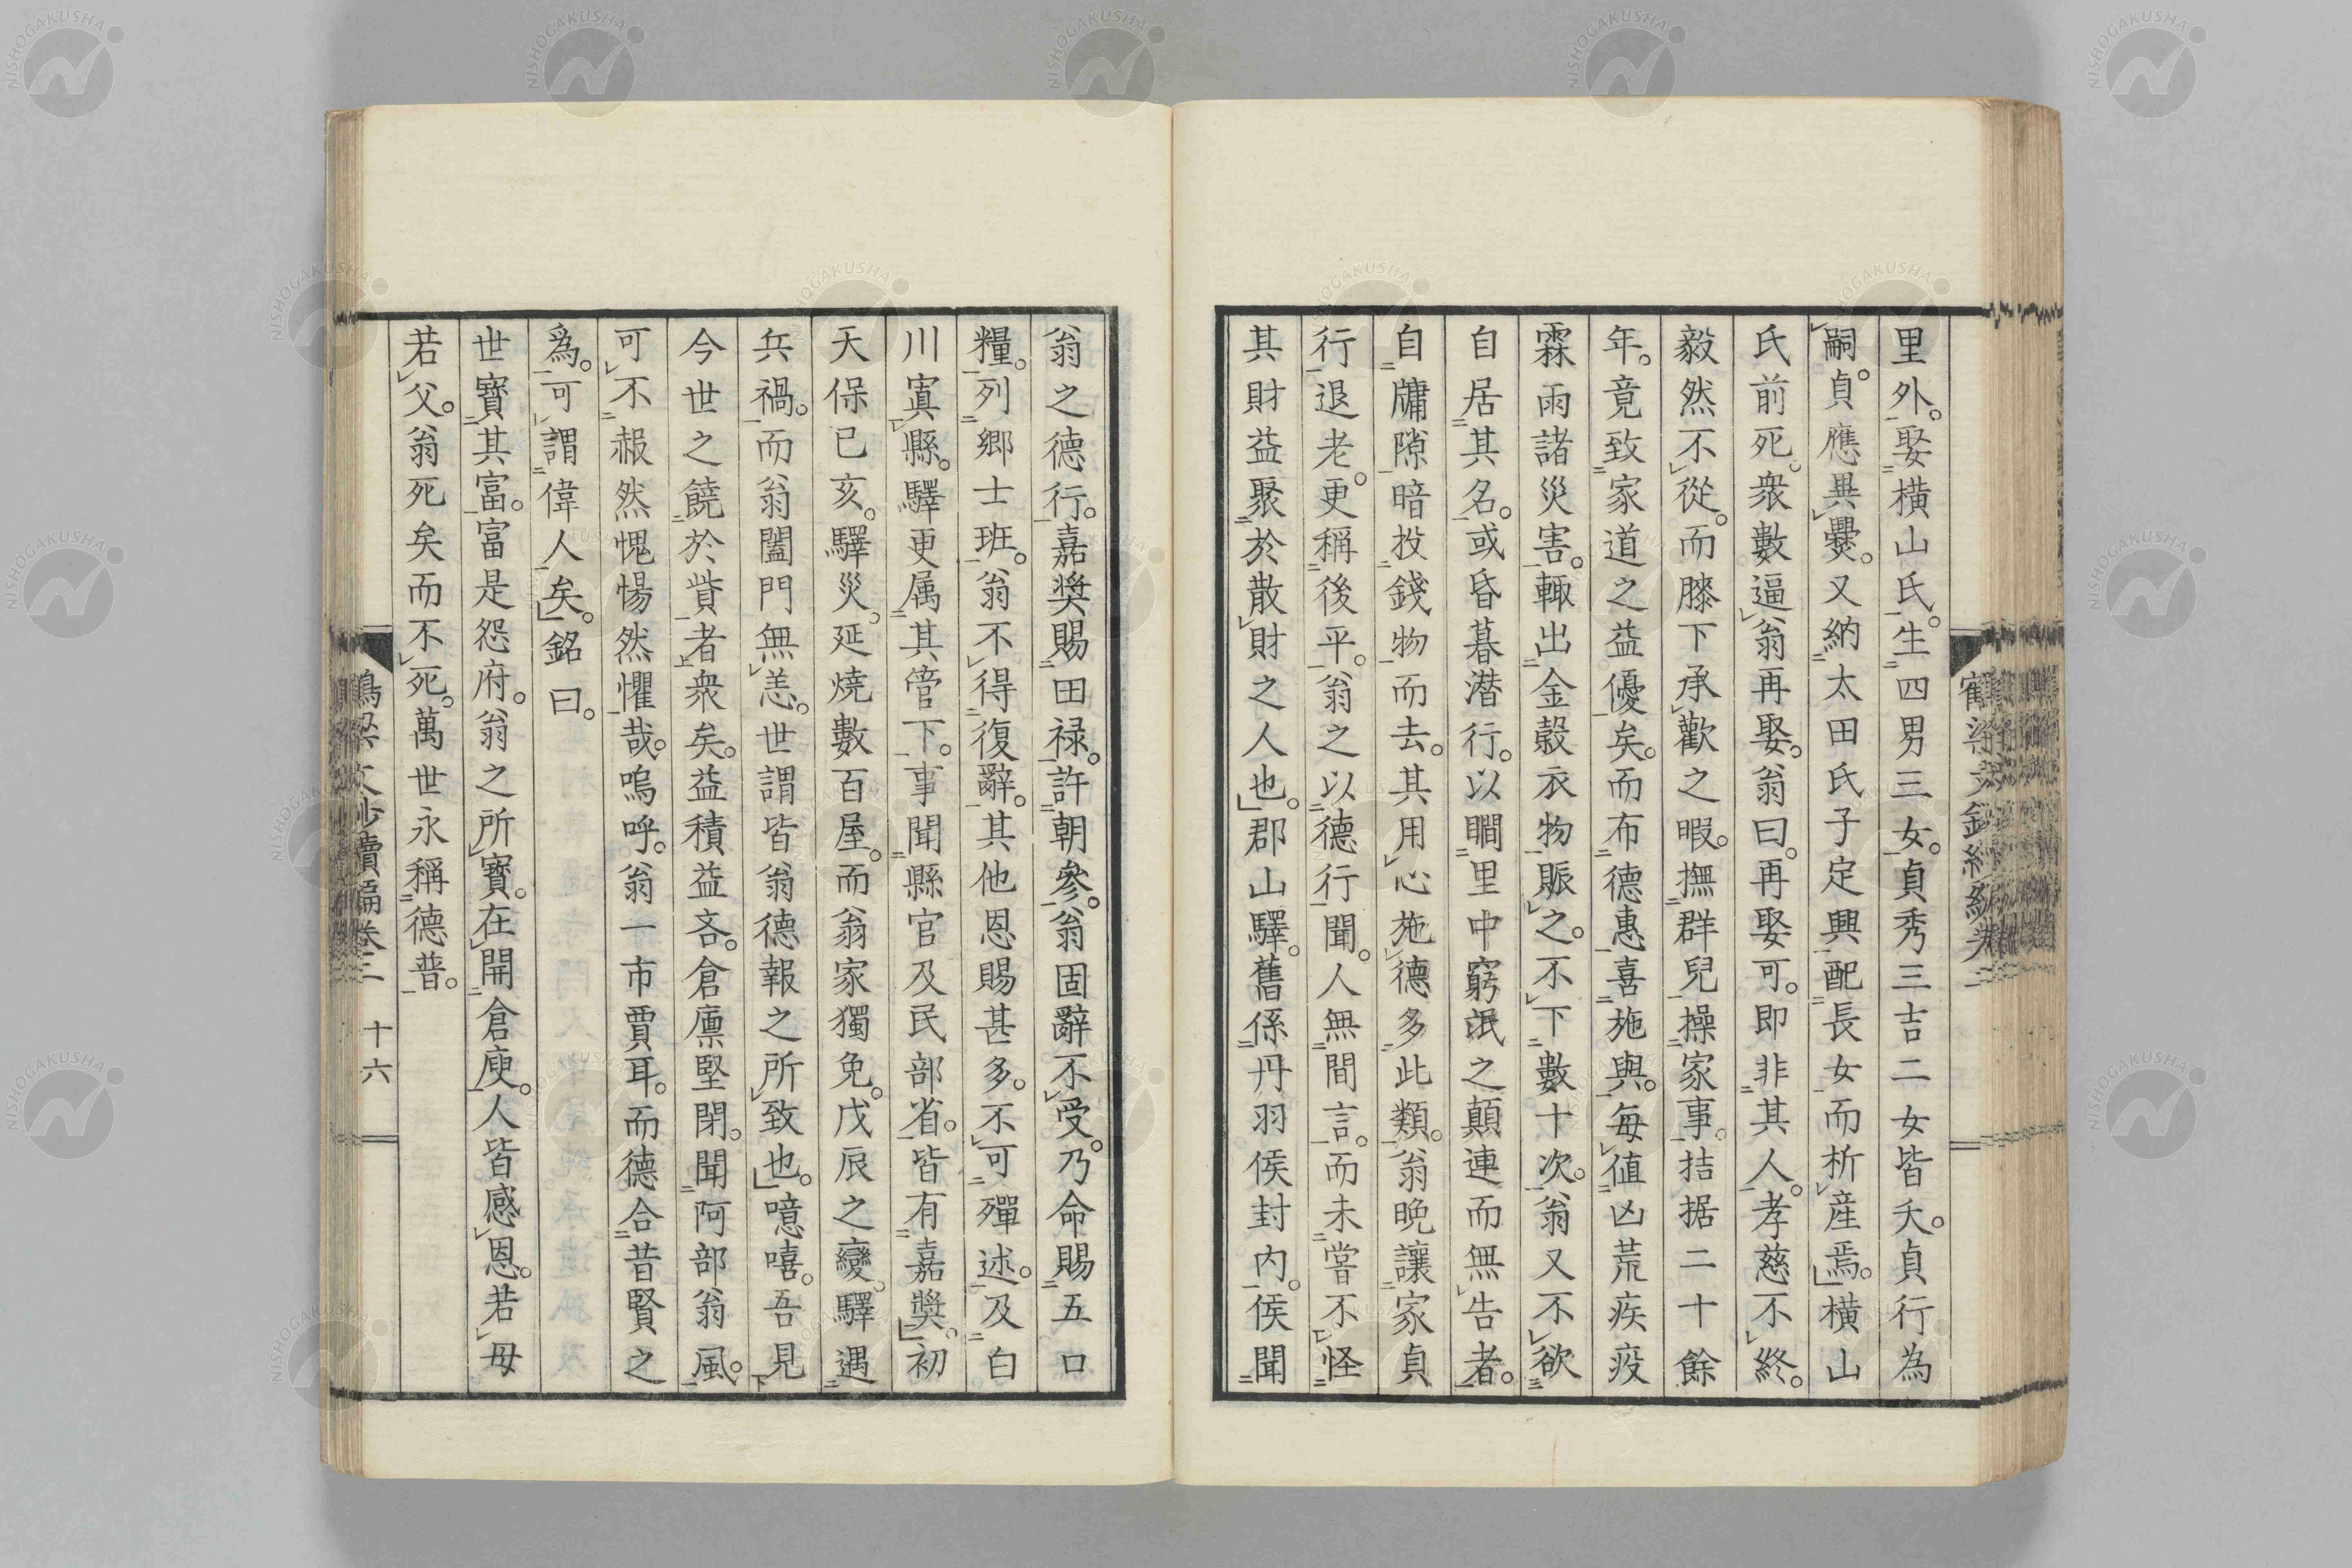 里外。娶橫山氏。生四男三女。貞秀三吉二女皆夭。貞行為
嗣。貞應異爨。又納太田氏子定興。配長女而析產焉。橫山
氏前死。衆數逼翁再娶。翁曰。再娶可。即非其人。孝慈不終。
毅然不從。而膝下承歡之暇。撫群兒操家事。拮据二十餘
年。竟致家道之益優矣。而布德惠喜施與。每値凶荒疾疫
霖雨諸災害。輙出金穀衣物賑之。不下數十次。翁又不欲
自居其名。或昏暮潜行。以瞯里中窮氓之顛連而無告者。
自牗隙暗投錢物而去。其用心施德多此類。翁晩讓家貞
行退老。更稱後平。翁之以德行聞。人無間言。而未嘗不怪
其財益聚於散財之人也。郡山驛。舊係丹羽侯封內。侯聞
翁之德行。嘉奬賜田禄。許朝參。翁固辭不受。乃命賜五口
糧。列鄉士班。翁不得復辭。其他恩賜甚多。不可殫述。及白
川寘縣。驛更属其管下。事聞縣官及民部省。皆有嘉奬。初
天保已亥。驛災。延燒數百屋。而翁家獨免。戊辰之變。驛遇
兵禍。而翁闔門無恙。世謂皆翁德報之所致也。噫嘻。吾見
今世之饒於貲者衆矣。益積益吝。倉廩堅閉。聞阿部翁風。
可不赧然愧惕然懼哉。嗚呼。翁一市賈耳。而德合昔賢之
爲。可謂偉人矣。銘曰。
世寶其富。富是怨府。翁之所寶。在開倉庾。人皆感恩。若母
若父。翁死矣而不死。萬世永稱德普。
十六